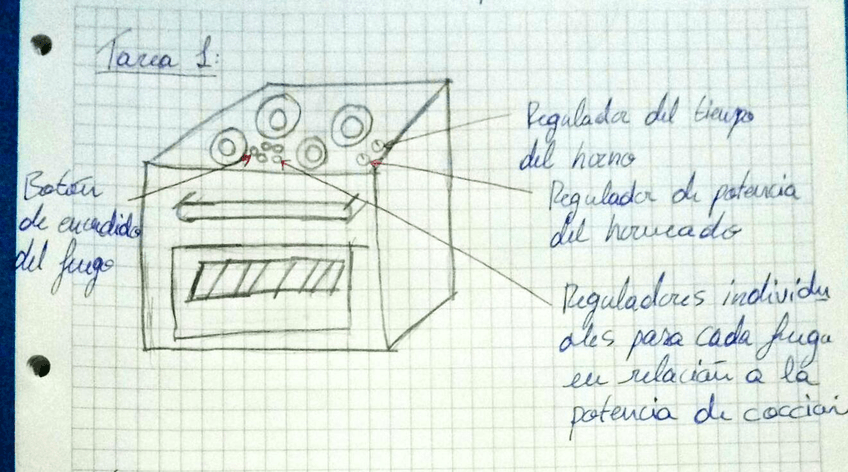 Tarea 1:
Regulador del tiempo
del horno
Regulador de potencia
del horneado
Botón
de encendido
del fuego
Reguladores individu
ales para cada fuego
en relación a la
potencia de cocción